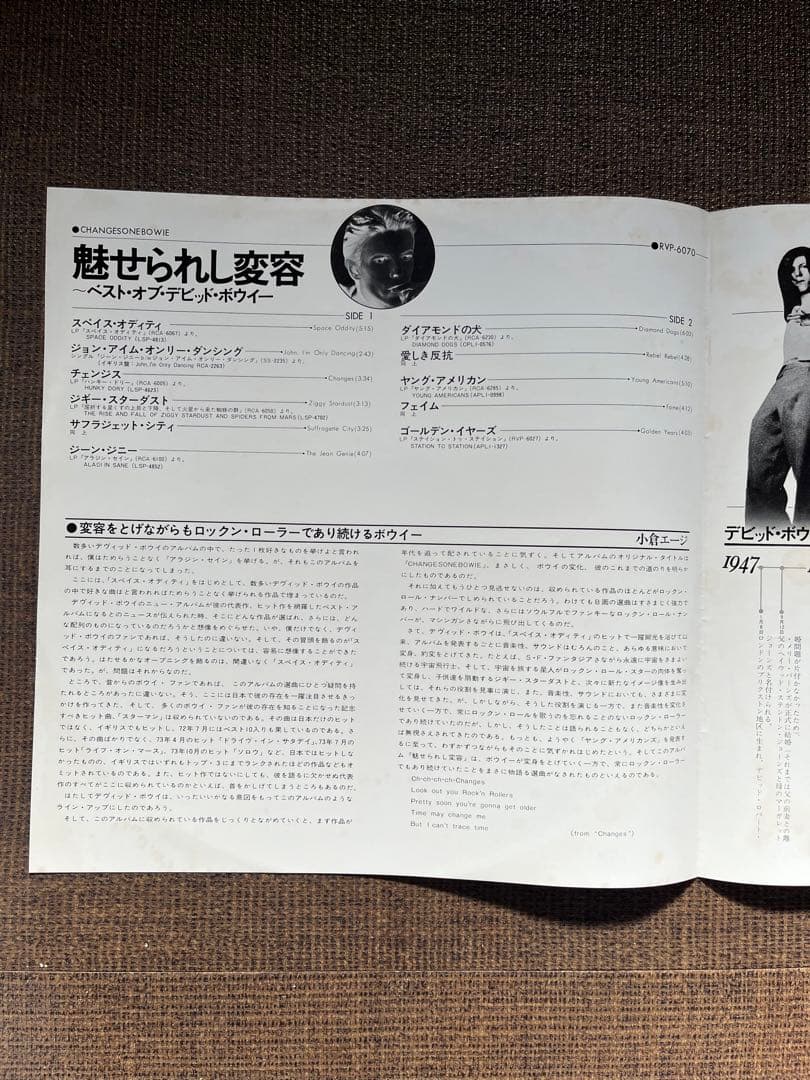 ●CHANGESONEBOWIE
●RVP-6070
魅せられし変容
〜ベスト・オブ・デビッド・ボウイー
SIDE 1
スペイス・オディティ Space Oddity (5:15)
LP「スペイス・オディティ」(RCA-6067)より。
SPACE ODDITY (LSP-4813)
ジョン・アイム・オンリー・ダンシング John, I'm Only Dancing (2:43)
シングル「ジーン・ジニーc/wジョン・アイム・オンリー・ダンシング」(SS-2235)より。
(イギリス盤:John, I'm Only Dancing RCA-2263)
チェンジス Changes (3:34)
LP「ハンキー・ドリー」(RCA-6005)より。
HUNKY DORY (LSP-4623)
ジギー・スターダスト Ziggy Stardust (3:13)
LP「屈折する星くずの上昇と下降、そして火星から来た蜘蛛の群」(RCA-6050)より。
THE RISE AND FALL OF ZIGGY STARDUST AND SPIDERS FROM MARS (LSP-4702)
サフラジェット・シティ Suffragette City (3:25)
同 上
ジーン・ジニー The Jean Genie (4:07)
LP「アラジン・セイン」(RCA-6100)より。
ALADIN SANE (LSP-4852)
SIDE 2
ダイアモンドの犬 Diamond Dogs (6:02)
LP「ダイアモンドの犬」(RCA-6230)より。
DIAMOND DOGS (CPL1-0576)
愛しき反抗 Rebel Rebel (4:28)
同 上
ヤング・アメリカン Young Americans (5:10)
LP「ヤング・アメリカン」(RCA-6285)より。
YOUNG AMERICANS (APL1-0998)
フェイム Fame (4:12)
同 上
ゴールデン・イヤーズ Golden Years (4:03)
LP「ステイション・トゥ・ステイション」(RVP-6027)より。
STATION TO STATION (APL1-1327)
●変容をとげながらもロックン・ローラーであり続けるボウイー
小倉エージ
数多いデヴィッド・ボウイのアルバムの中で、たった1枚好きなものを挙げよと言わ
れれば、僕はためらうことなく「アラジン・セイン」を挙げる。が、それもこのアルバムを
耳にするまでのことになってしまった。
ここには、「スペイス・オディティ」をはじめとして、数多いデヴィッド・ボウイの作品
の中で好きな曲はと言われればためらうことなく挙げられる作品で埋まっているのだ。
デヴィッド・ボウイのニュー・アルバムが彼の代表作、ヒット作を網羅したベスト・ア
ルバムになるとのニュースが伝えられた時、そこにどんな作品が選ばれ、さらには、どん
な配列のものになっているのだろうかと想像をめぐらせた。いや、僕だけでなく、デヴィ
ッド・ボウイのファンであれば、そうしたのに違いない。そして、その冒頭を飾るのが「ス
ペイス・オディティ」になるだろうということについては、容易に想像することができた
であろう。はたせるかなオープニングを飾るのは、間違いなく「スペイス・オディティ」
であった。が、問題はそれからなのだ。
ところで、昔からのボウイ・ファンであれば、このアルバムの選曲にひとつ疑問を持
たれるところがあったに違いない。そう、ここには日本で彼の存在を一躍注目させるきっ
かけを作ってきた、そして、多くのボウイ・ファンが彼の存在を知ることになった記念
すべきヒット曲、「スターマン」は収められていないのである。その曲は日本だけのヒット
ではなく、イギリスでもヒットし、72年7月にはベスト10入りも果しているのである。さ
らに、その曲ばかりでなく、73年4月のヒット「ドライヴ・イン・サタデイ」、73年7月の
ヒット「ライフ・オン・マース」、73年10月のヒット「ソロウ」など、日本ではヒットしな
かったものの、イギリスではいずれもトップ・3にまでランクされたほどの作品などもオ
ミットされているのである。また、ヒット作ではないにしても、彼を語るに欠かせぬ代表
作のすべてがここに収められているのかといえば、首をかしげてしまうところもあるのだ。
はたしてデヴィッド・ボウイは、いったいいかなる意図をもってこのアルバムのような
ライン・アップにしたのであろう。
そして、このアルバムに収められている作品をじっくりとながめていくと、まず作品が
年代を追って配されていることに気ずく。そしてアルバムのオリジナル・タイトルは
「CHANGESONEBOWIE」、まさしく、ボウイの変化、彼のこれまでの道のりを明らか
にしたものであるのだ。
それに加えてもうひとつ見逃せないのは、収められている作品のほとんどがロックン・
ロール・ナンバーでしめられていることだろう。わけてもB面の選曲はすさまじく強力で
あり、ハードでワイルドな、さらにはソウルフルでファンキーなロックン・ロール・ナン
バーが、マシンガンさながらに飛び出してくるのだ。
さて、デヴィッド・ボウイは、「スペイス・オディティ」のヒットで一躍脚光を浴びて以
来、アルバムを発表するごとに音楽性、サウンドはむろんのこと、あらゆる意味において
変身、約変をとげてきた。たとえば、S・F・ファンタジアさながら永遠に宇宙をさまよい
続ける宇宙飛行士、そして、宇宙を旅する星人がロックン・ロール・スターの肉体を奪っ
て変身し、子供達を扇動するジギー・スターダストと、次々に新たなイメージ像を生み出
しては、それらの役割を見事に演じ、また、音楽性、サウンドにおいても、さまざまに変
化を見せてきた。が、しかしながら、そうした役割を演じる一方で、また音楽性を変化さ
せていく一方で、常にロックン・ロールを歌うのを忘れることのないロックン・ローラー
であり続けていたのだが、しかし、そうしたことは語られることもなく、どちらかといえ
ば無視さえされてきたのである。もっとも、ようやく「ヤング・アメリカンズ」を発表す
るに至って、わずかずつながらもそのことに気ずかれはじめたという。そしてこのアルバ
ム「魅せられし変容」は、ボウイーが変身をとげていく一方で、常にロックン・ローラー
でもあり続けていたことをまさに物語る選曲がなされたものといえるのである。
Ch-ch-ch-ch-Changes
Look out you Rock'n Rollers
Pretty soon you're gonna get older
Time may change me
But I can't trace time
(from “Changes”)
デビッド・ボウ
1947